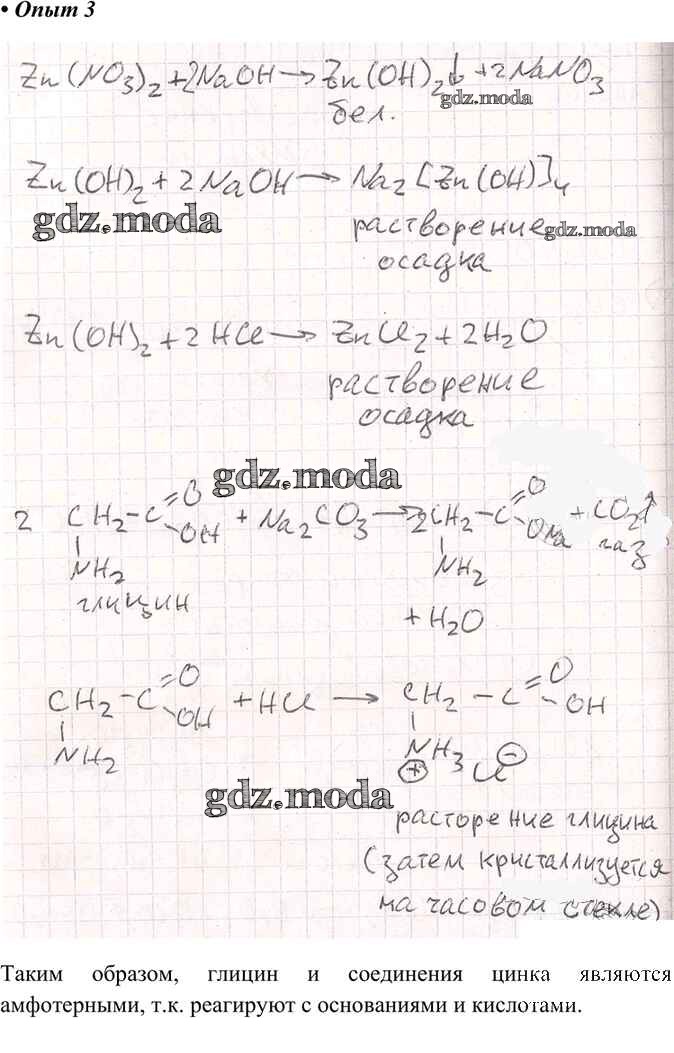 • Опыт 3
Zn(NO3)2+2NaOH→Zn(OH)2↓+2NaNO3
gdz.moda
бел.
Zn(OH)2+2NaOH→Na2[Zn(OH)]4
gdz.moda
растворение gdz.moda
осадка
Zn(OH)2+2HCl→ZnCl2+2H2O
растворение
осадка
gdz.moda
O O
2 CH2-C + Na2CO3→2CH2-C + CO2↑
OH ONa газ
NH2 NH2
глицин
+H2O
O O
CH2-C +HCl → CH2-C
OH OH
NH2 NH3 Cl
+ −
gdz.moda
расторение глицина
(затем кристаллизуется
на часовом стекле)
Таким образом, глицин и соединения цинка являются
амфотерными, т.к. реагируют с основаниями и кислотами.